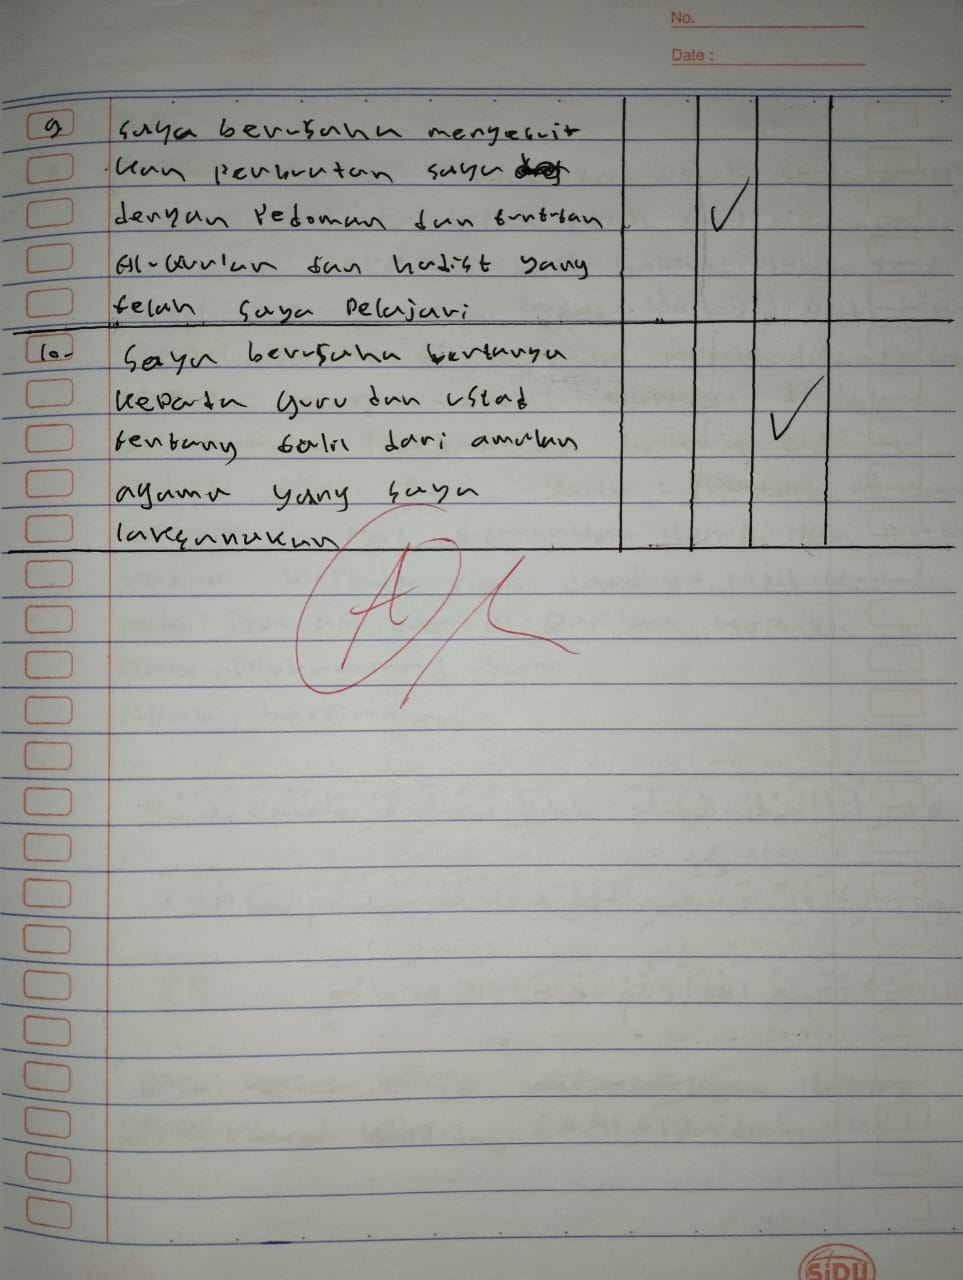 No.
Date :
9 saya berusaha menyesuit
kan perbuatan saya
dengan Pedoman dan tuntutan
Al-Qur'an dan hadist yang
telah saya Pelajari
10. Saya berusaha bertanya
kepada guru dan ustad
tentang dalil dari amalan
agama yang saya
laksanakan
A
SiDU